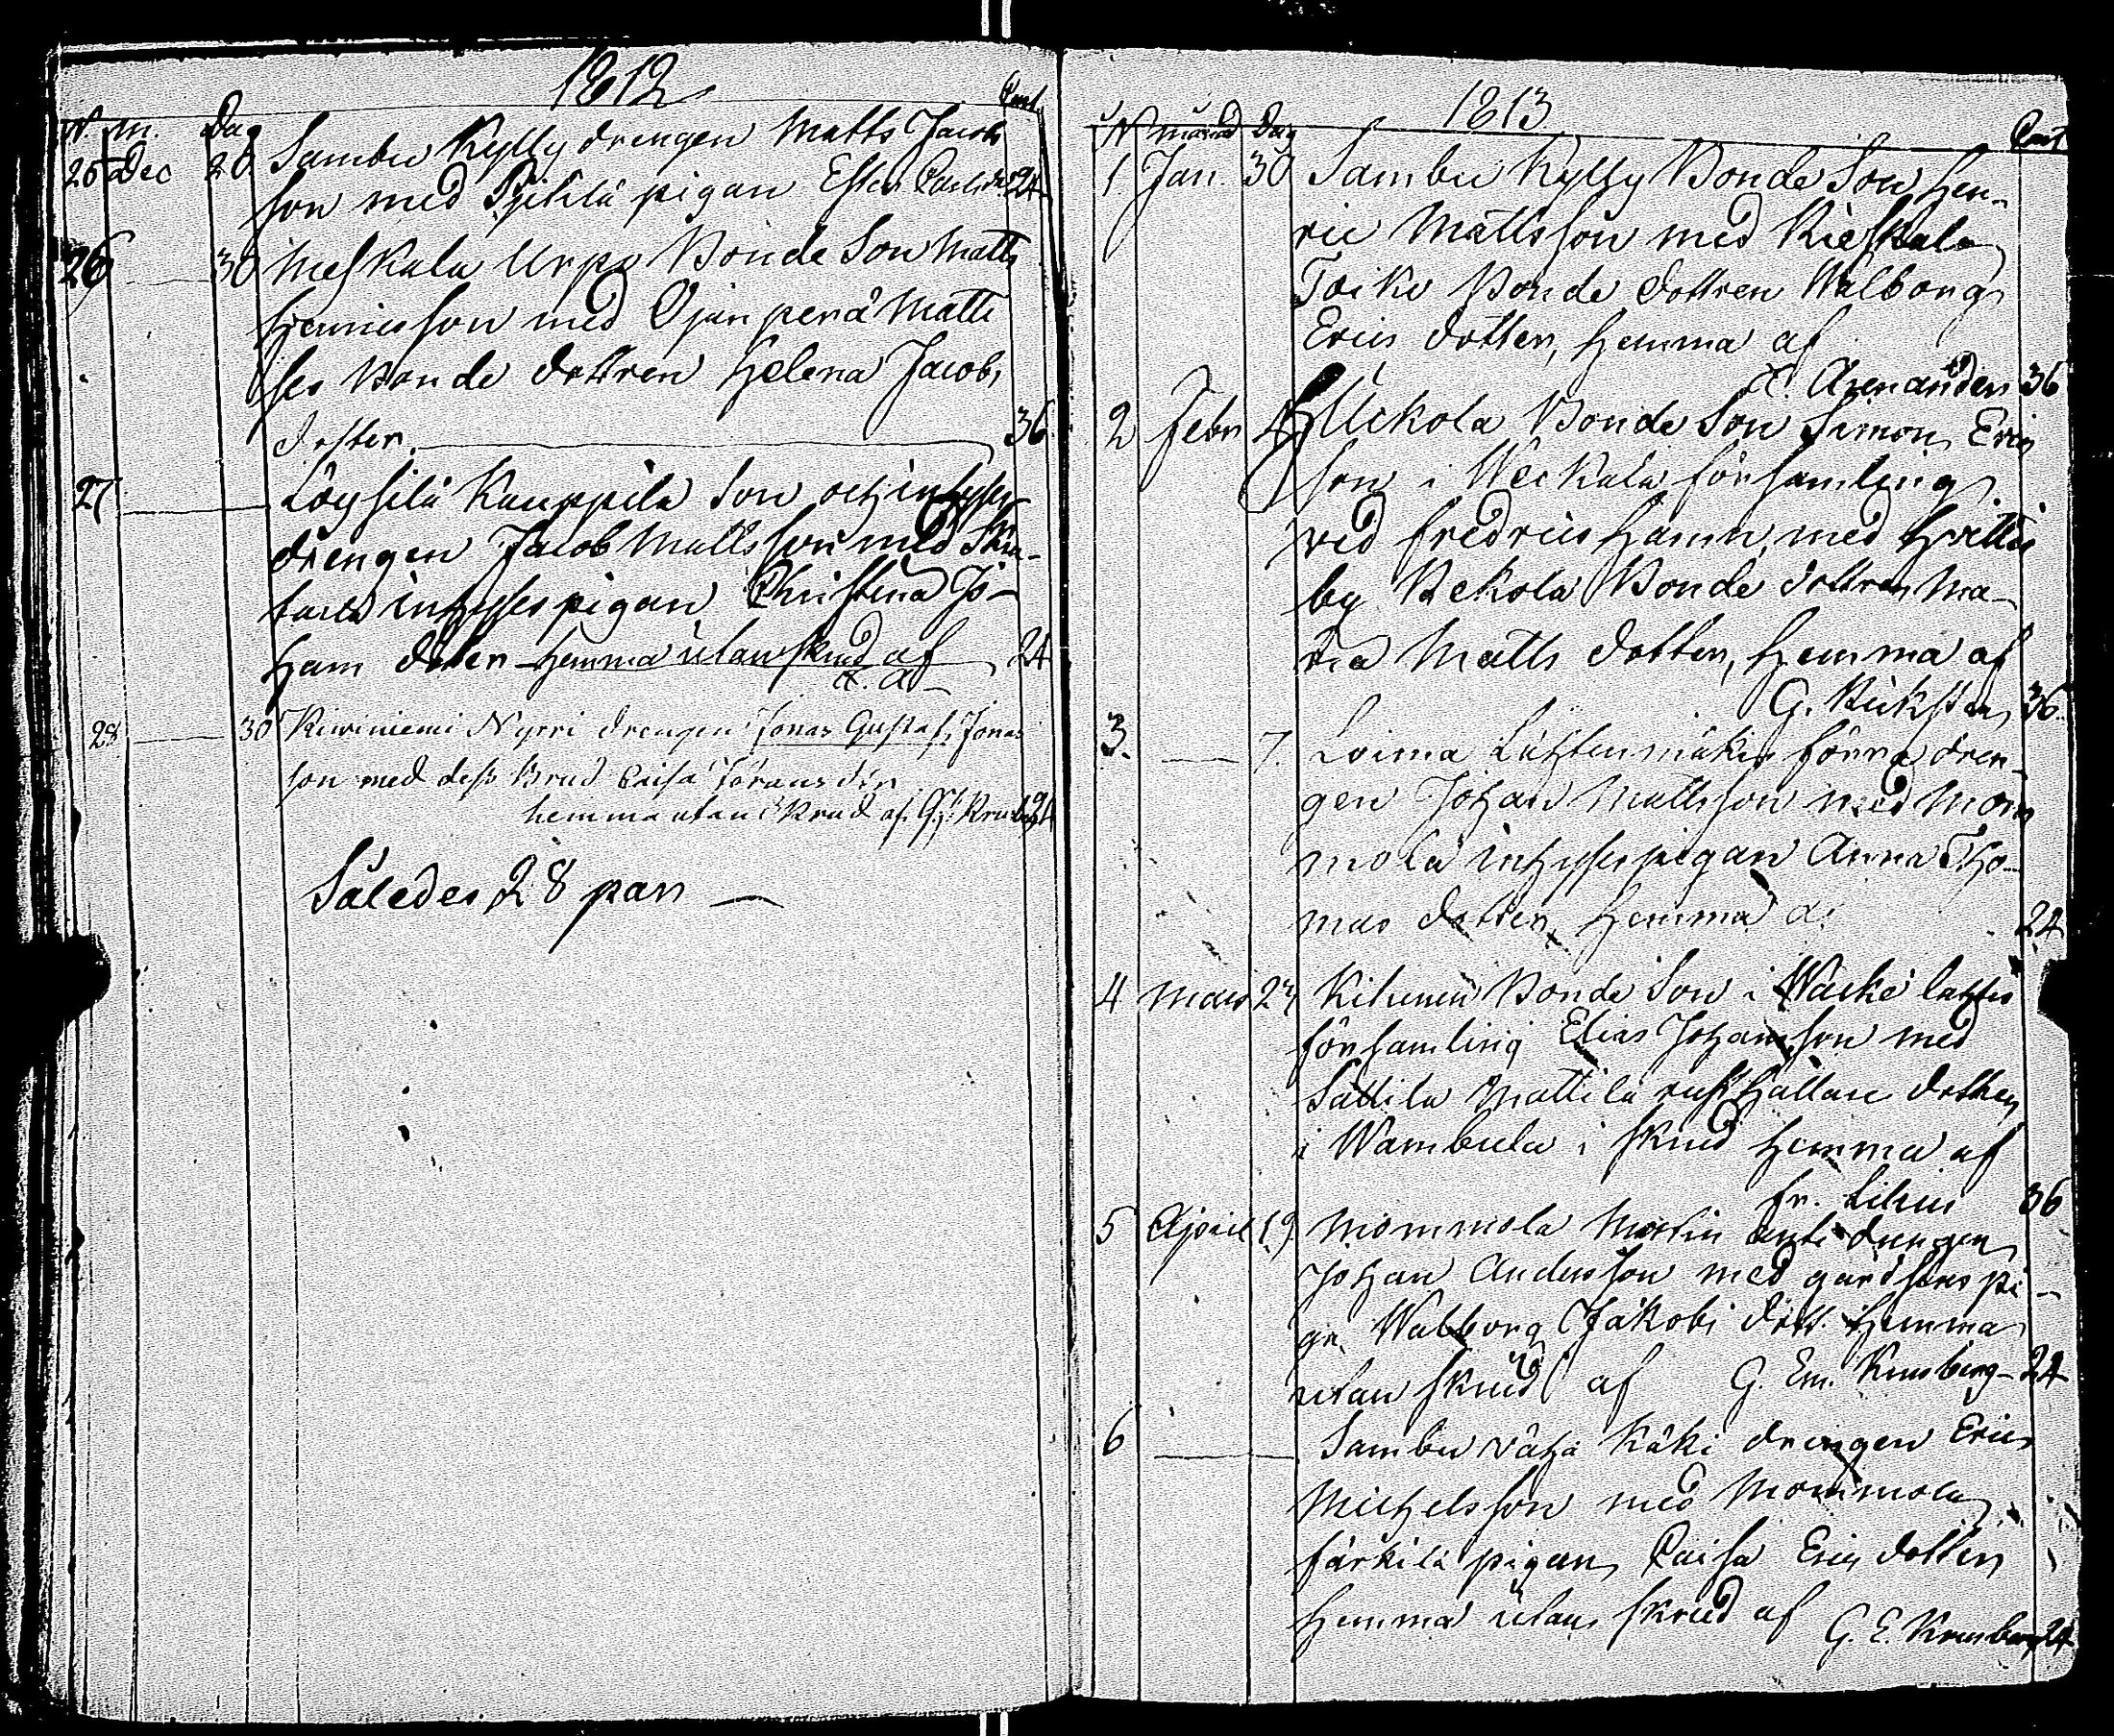 1812
N. m. Dag
25 Dec 28 Sambu Kylly drengen Matts Jacobs
son med Pyhlä pigan Ester Carlsdr 24
26 30 Meskala Urpo Bonde Son Matts
Henricsson med Ojanperä Matti
les Bonde dottren Helena Jacobs
dotter. 36
27 Löysilä Kauppila Son och inhyses
drengen Jacob Mattsson med
inhyses pigan Christina Jo-
ham dotter hemma utan skrud af 24
A. A
28 30 Kiviniemi Nyrri drengen Jonas Gustaf Jonas
son med dess Brud Caisa Görans dr
hemma utan skrud af G. E. Krusberg 24
Således 28 par
1813
N månad Dag
1 Jan 30 Sambu Kylly Bonde Son Hen-
ric Mattsson med Kieskala
Toiku Bonde dottren Walborg
Erics dotter, hemma af
A. Arenander 36
2 Febr 4 Uckola Bonde Son Simon Erics
son i Weckala församling
ved Fredrics Hamn, med Hvittis
by Uckola Bonde dottren Ma-
ria Matts dotter, hemma af
G. 36
3. 7. Loima Lähtenmäki förra dren-
gen Johan Mattsson med Mom
mola inhyses pigan Anna Tho-
mas dotter, hemma d. 24
4 Mars 24 Kihunen Bonde Son i
församling Elias Johansson med
Sattila Mattila rusthållare dotter
i Wambula i skrud hemma af
Fr. Lilius 36
5 April 19 Mommola Martin Antti drengen
Johan Andersson med gårdsens pi-
ga Walborg Jakobs dott. hemma
utan skrud af G. Em. Krusberg 24
6 Sambu vähä Käki drengen Erics
Michelsson med Mommola
Färkilä pigan Caisa Erics dotter
hemma utan skrud af G. E. Krusberg 24